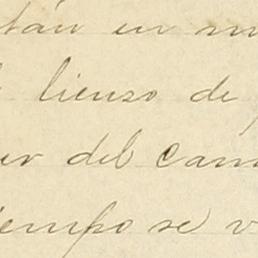 tán en m
lienzo de
er del cam
iempo se v